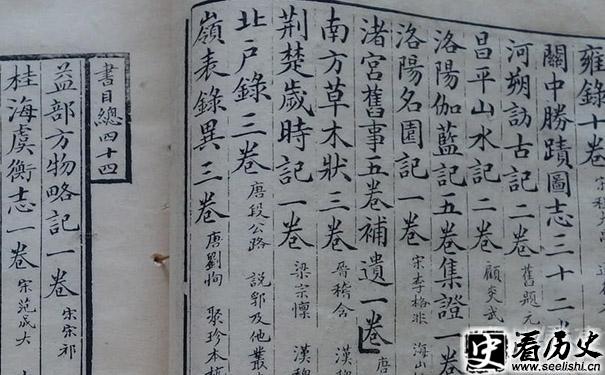 雍錄十卷
關中勝蹟圖志三十二
河朔訪古記二卷 舊題元
昌平山水記二卷 顧炎武
洛陽伽藍記五卷集證一卷
洛陽名園記一卷 宋李格非 海山
渚宮舊事五卷補遺一卷 唐
南方草木狀三卷 晉嵇含 漢魏
荆楚歲時記一卷 梁宗懍 漢魏
北戶錄三卷 唐段公路 說郛及他叢
嶺表錄異三卷 唐劉恂 聚珍本
書目總四十四
益部方物略記一卷 宋宋祁
桂海虞衡志一卷 宋范成大
史 看历史
www.seelishi.cn